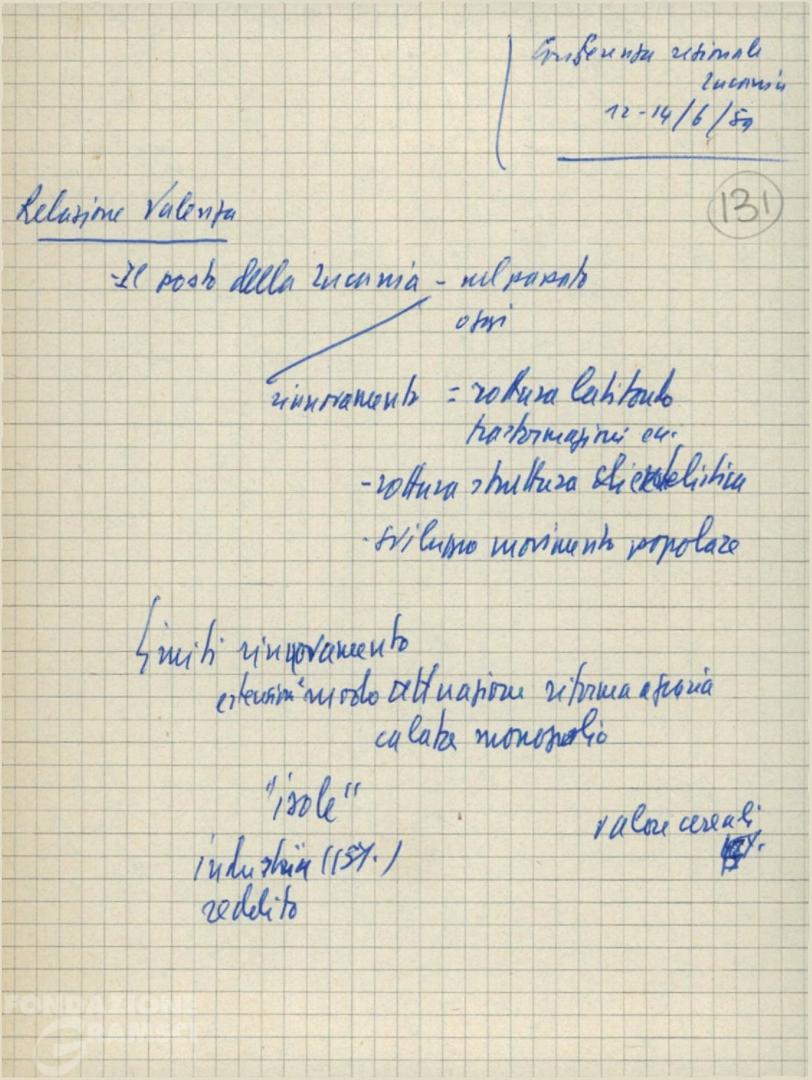 Conferenza regionale
Lucania
12-14/6/59
131
Relazione Valenza
- Il posto della Lucania - nel passato
oggi
rinnovamento = rottura latifondo
trasformazioni ec.
- rottura struttura clientelistica
- sviluppo movimento popolare
Limiti rinnovamento
estensione modo attuazione riforma agraria
calata monopolio
"isole"
industria (15%)
valore cereali
reddito
FONDAZIONE
GRAMSCI